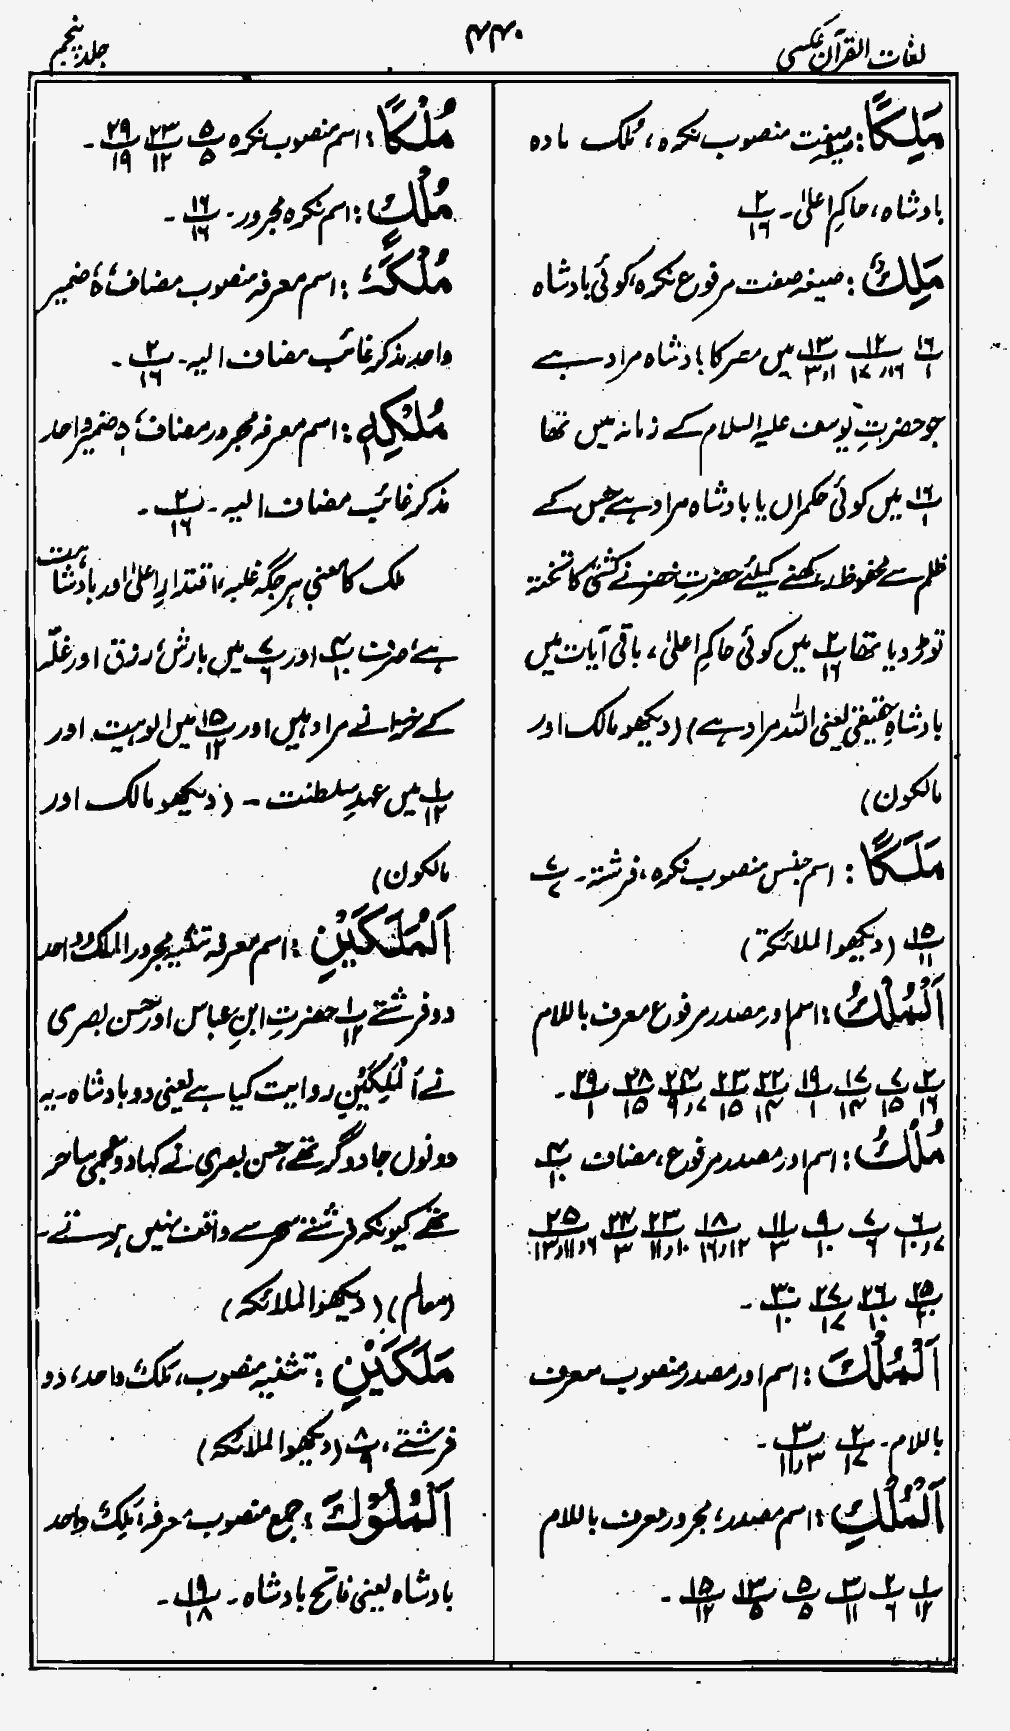 لغات القرآن عکسی
۴۴۰
جلد پنجم
مَلِكًا: صیغہ صفت منصوب نکرہ، مُلک مادہ
بادشاہ، حاکمِ اعلیٰ۔ ۲/۱۶
مَلِكٌ: صیغہ صفت مرفوع نکرہ، کوئی بادشاہ
۱۶/۱ ۱۲/۱۶،۱۷ ۱۳/۱،۳ میں مصر کا بادشاہ مراد ہے
جو حضرتِ یوسف علیہ السلام کے زمانہ میں تھا
۱۶/۱ میں کوئی حکمراں یا بادشاہ مراد ہے جس کے
ظلم سے محفوظ رکھنے کیلئے حضرتِ خضر نے کشتی کا تختہ
توڑ دیا تھا ۲/۱۶ میں کوئی حاکمِ اعلیٰ، باقی آیات میں
بادشاہِ حقیقی یعنی اللہ مراد ہے) (دیکھو مالک اور
مالکون)
مَلَكًا: اسم جنس منصوب نکرہ، فرشتہ۔ ۷/۷
۱۵/۱۱ (دیکھو الملائکۃ)
اَلْمُلْكُ: اسم اور مصدر مرفوع معرف باللام
۲/۱۶ ۷/۱۵ ۱۷/۱۴ ۱۹/۱ ۲۲/۱۴ ۲۳/۱۵ ۲۴/۷،۹ ۲۸/۱۵ ۲۹/۱۔
مُلْكُ: اسم اور مصدر مرفوع، مضاف ۴/۱۰
۶/۷،۱۰ ۷/۶ ۹/۱۰ ۱۱/۳ ۱۸/۱۲،۱۶ ۲۳/۱۰،۱۱ ۲۴/۳ ۲۵/۶،۱۱،۱۳
۲۵/۲۰ ۲۶/۱۰ ۲۷/۱۷ ۳۰/۱۰۔
اَلْمُلْكَ: اسم اور مصدر منصوب معرف
باللام۔ ۲/۱۷ ۳/۳،۱۱۔
اَلْمُلْكِ: اسم مصدر، مجرور معرف باللام
۱/۱۲ ۲/۶ ۳/۱۱ ۵/۵ ۱۳/۵ ۱۵/۱۲۔
مُلْكًا: اسم منصوب نکرہ ۵/۵ ۲۳/۱۲ ۲۹/۱۹۔
مُلْكٍ: اسم نکرہ مجرور۔ ۱۶/۱۶۔
مُلْكَهٗ: اسم معرفہ منصوب مضاف، ہٗ ضمیر
واحد مذکر غائب مضاف الیہ۔ ۲/۱۶۔
مُلْكِهٖ: اسم معرفہ مجرور مضاف، ہٖ ضمیر واحد
مذکر غائب مضاف الیہ۔ ۲/۱۶۔
ملک کا معنی ہر جگہ غلبہ، اقتدارِ اعلیٰ اور بادشاہت
ہے، صرف ۴/۱۰ اور ۷/۶ میں بارش، رزق اور غلّہ
کے خزانے مراد ہیں اور ۱۵/۱۲ میں الوہیت اور
۱/۱۲ میں عہدِ سلطنت۔ (دیکھو مالک اور
مالکون)
اَلْمَلَكَيْنِ: اسم معرفہ تثنیہ مجرور الملک واحد
دو فرشتے ۱/۱۲ حضرتِ ابنِ عباس اور حسن بصری
نے اَلْمَلِكَيْنِ روایت کیا ہے یعنی دو بادشاہ۔ یہ
دونوں جادوگر تھے، حسن بصری نے کہا دو عجمی ساحر
تھے کیونکہ فرشتے سحر سے واقف نہیں ہوتے۔
(معالم) (دیکھو الملائکہ)
مَلَكَيْنِ: تثنیہ منصوب، مَلَک واحد، دو
فرشتے، ۸/۹ (دیکھو الملائکہ)
اَلْمُلُوْكَ: جمع منصوب معرفہ، مَلِک واحد
بادشاہ یعنی فاتح بادشاہ۔ ۱۹/۱۸۔